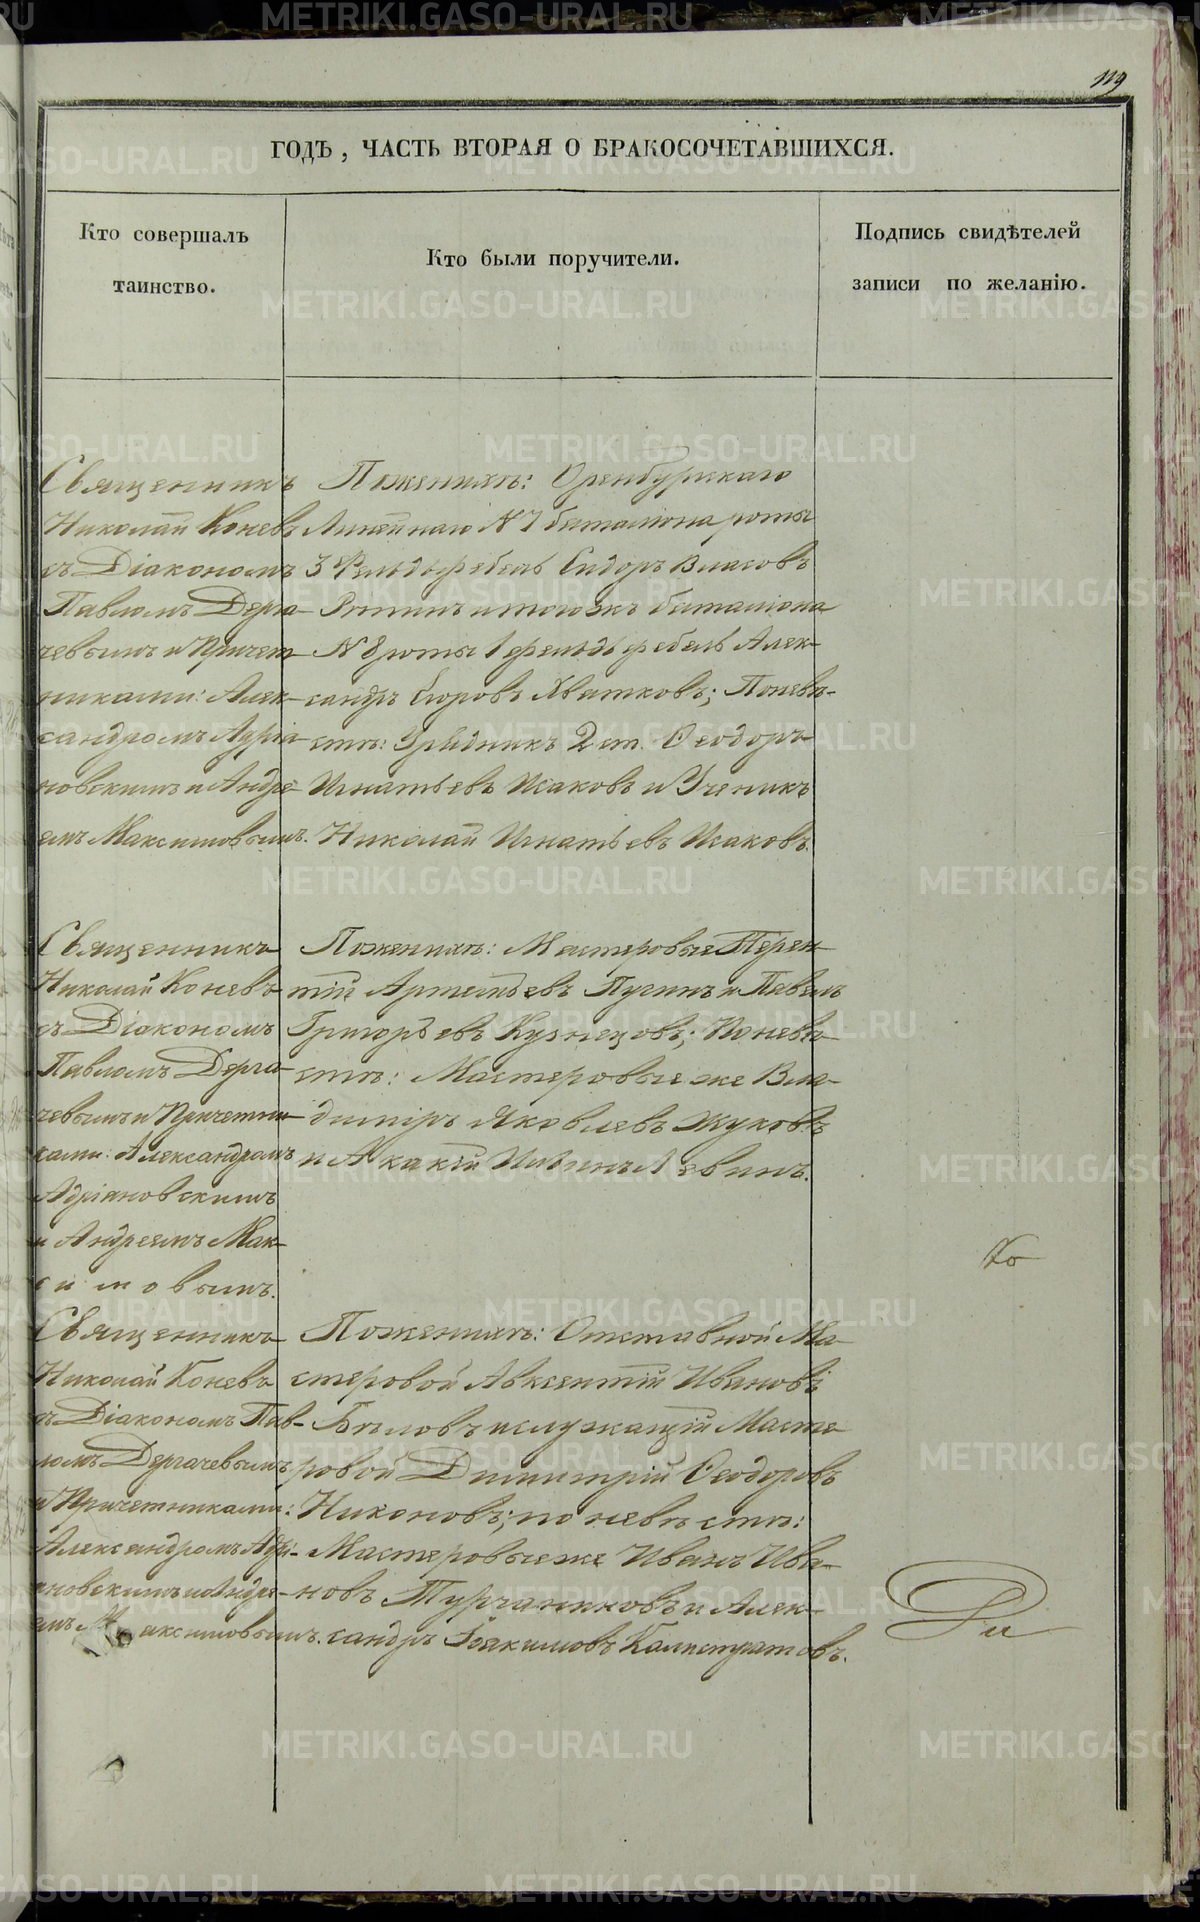 119
ГОДЪ, ЧАСТЬ ВТОРАЯ О БРАКОСОЧЕТАВШИХСЯ.
Кто совершалъ
таинство.
Кто были поручители.
Подпись свидѣтелей
записи по желанію.
Священникъ
Николай Коневъ
съ Діакономъ
Павломъ Дерга-
чевымъ и Причет-
никами: Алек-
сандромъ Адріа-
новскимъ и Андре-
емъ Максимовымъ.
По женихѣ: Оренбургскаго
Линейнаго № 7 баталіона роты
3 Фельдфебель Сидоръ Власовъ
и того жъ баталіона
№ 8 роты 1 фельдфебель Алек-
сандръ Егоровъ Хватковъ; По невѣ-
стѣ: Урядникъ 2 ст. Ѳеодоръ
Игнатьевъ Исаковъ и Ученикъ
Николай Игнатьевъ Исаковъ.
Священникъ
Николай Коневъ
съ Діакономъ
Павломъ Дерга-
чевымъ и Причетни-
ками: Александромъ
Адріановскимъ
и Андреемъ Мак-
симовымъ.
По женихѣ: Мастеровые Терен-
тій Артемьевъ Пугинъ и Павелъ
Григорьевъ Кузнецовъ; По невѣ-
стѣ: Мастеровые же Вла-
диміръ Яковлевъ Жуковъ
и Акакій Левинъ.
Священникъ
Николай Коневъ
съ Діакономъ Пав-
ломъ Дергачевымъ
и Причетниками:
Александромъ Адрі-
ановскимъ и Андре-
емъ Максимовымъ.
По женихѣ: Отставной Ма-
стеровой Авксентій Ивановъ
Бѣловъ и служащій Масте-
ровой Димитрій Ѳеодоровъ
Никоновъ; по невѣстѣ:
Мастеровые же Иванъ Ива-
новъ Турчаниковъ и Алек-
сандръ Іоакимовъ Калистратовъ.
METRIKI.GASO-URAL.RU